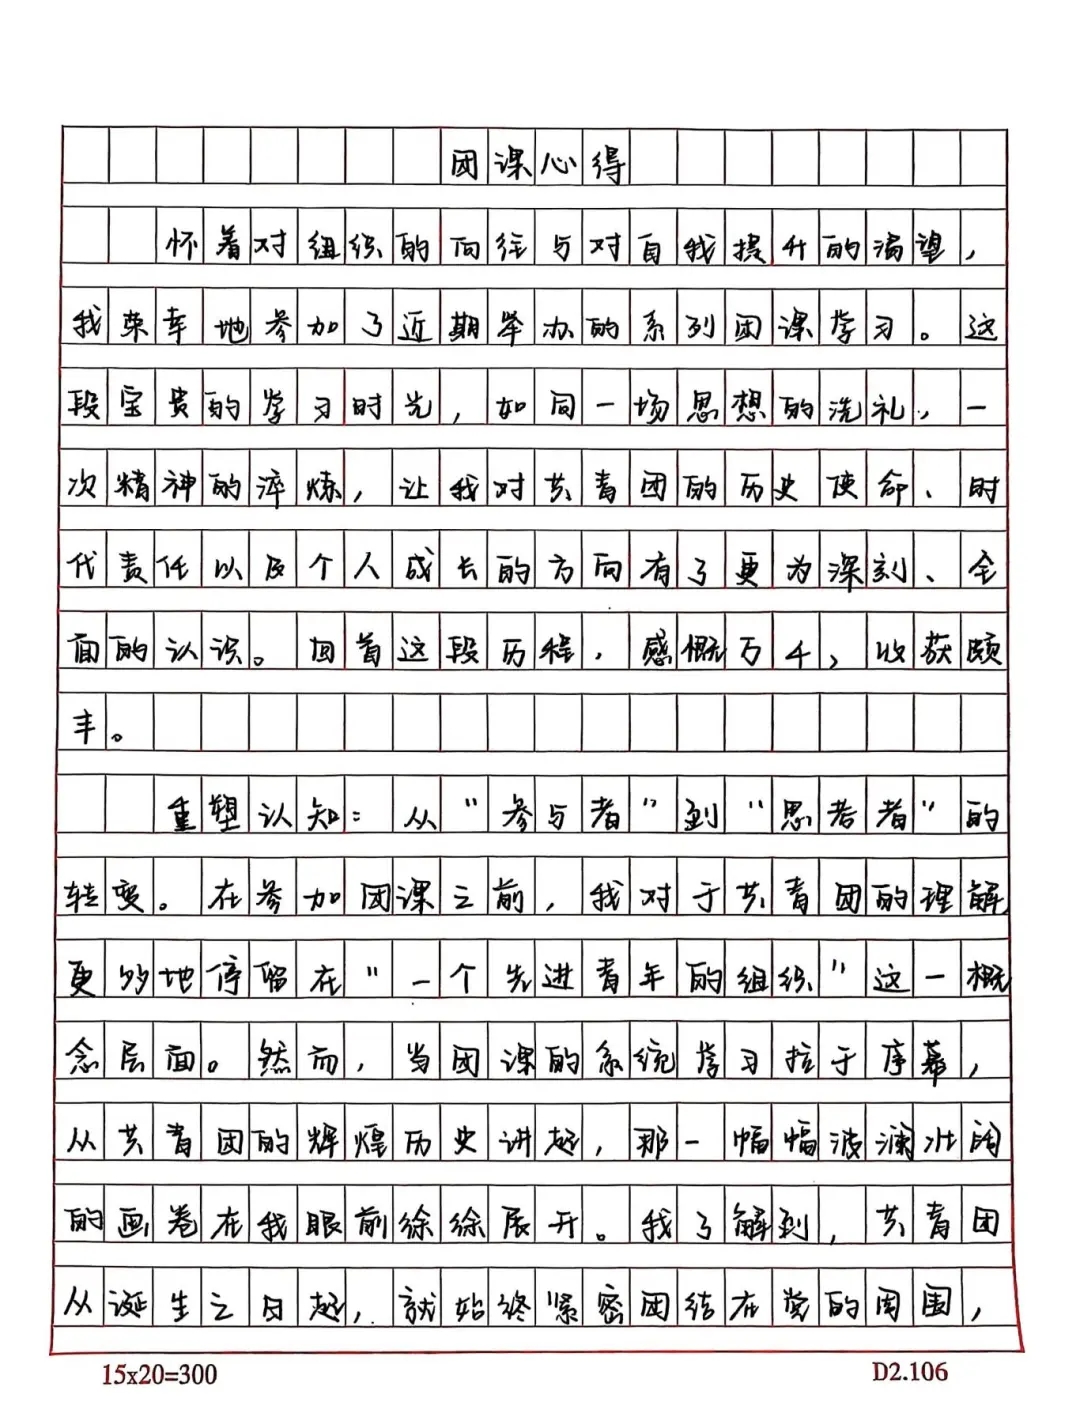 团课心得
怀着对组织的向往与对自我提升的渴望，
我荣幸地参加了近期举办的系列团课学习。这
段宝贵的学习时光，如同一场思想的洗礼、一
次精神的淬炼，让我对共青团的历史使命、时
代责任以及个人成长的方向有了更为深刻、全
面的认识。回首这段历程，感概万千，收获颇
丰。
重塑认知：从“参与者”到“思考者”的
转变。在参加团课之前，我对于共青团的理解
更多地停留在“一个先进青年的组织”这一概
念层面。然而，当团课的系统学习拉于序幕，
从共青团的辉煌历史讲起，那一幅幅波澜壮阔
的画卷在我眼前徐徐展开。我了解到，共青团
从诞生之日起，就始终紧密团结在党的周围，
15x20=300
D2.106